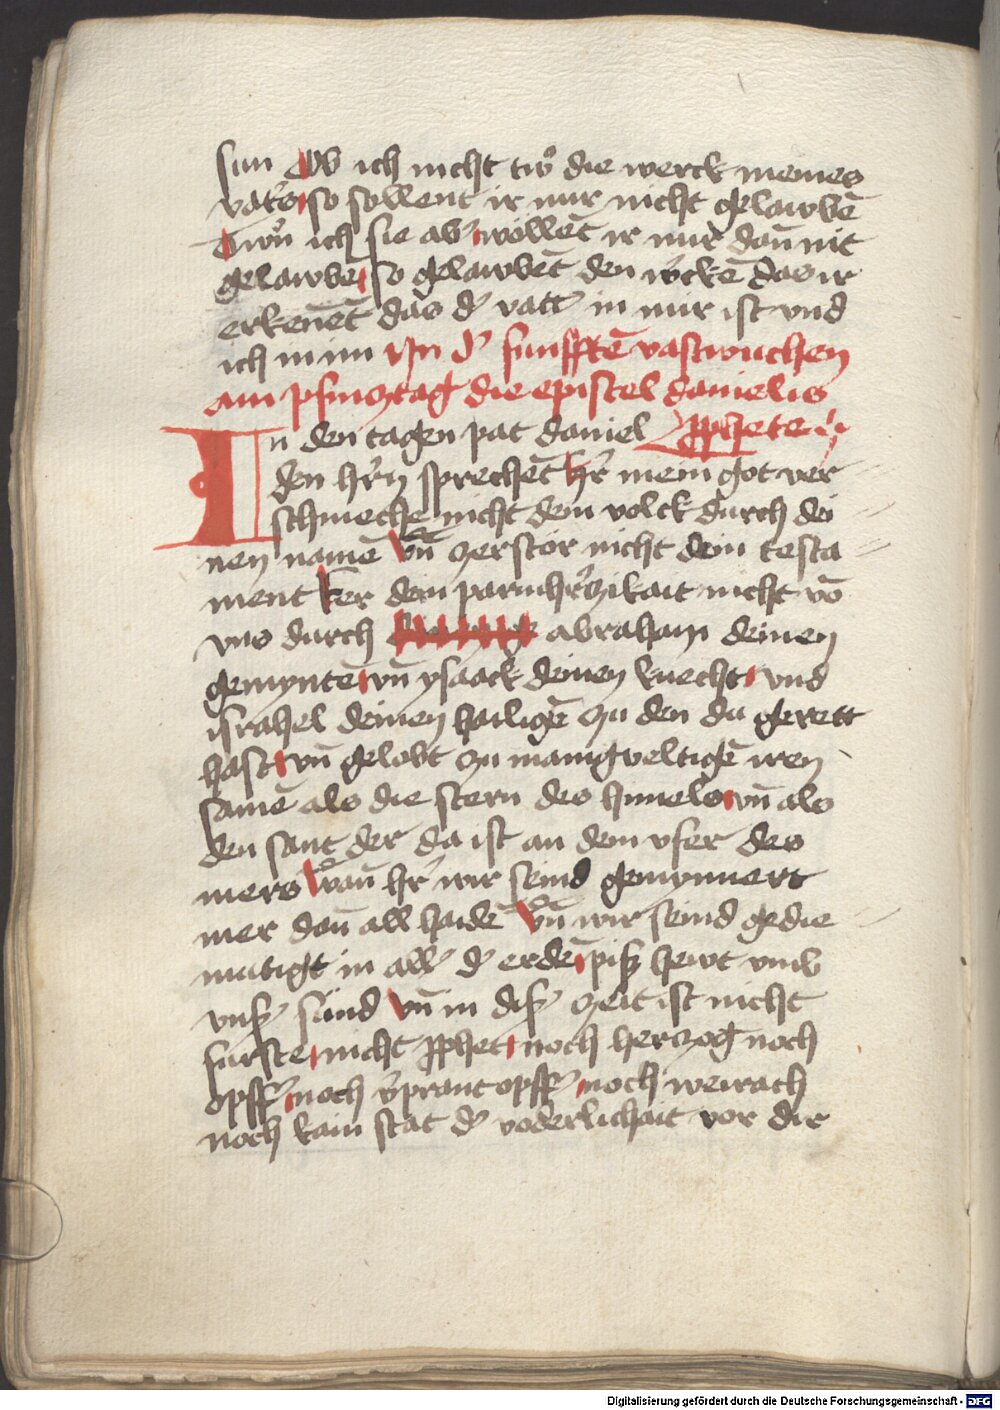 sun Ob ich nicht twͦ die werck meines
vaters so sollent ir mir nicht gelawbē
Twͦn ich sie aber wöllēt ir mir dañ nit
gelawbē so gelawbēt den w̄ckē das ir
erkeñēt das d' vatt' in mir ist vnd
ich in im Yn d' funfftē vastwuchen
am pfincztag die epistel danielis
In den tagen pat daniel pphete
den hr̄n sprechēt hr̄ mein got ver
schmeche nicht dem volck durch dei
nen namē Vñ zerstör nicht dein testa
ment ker dein parmhr̄zikait nicht vō
vns durch abraham deinen
gemyntē vñ ysaack deinen knecht vnd
israhel deinen hailigē zu den du gerett
hast vñ gelobt zu manigueltigē iren
samē als die stern des himels vñ als
den sant der da ist an dem vfer des
mers Wañ hr̄ wir seind gemynnert
mer dañ all haidē Vñ wir seind gedie
mutigt in all' d' erdē pisz hewt vmb
vns' sünd Vñ in dis' zeit ist nicht
fürste nicht pphet noch herzog noch
opff' noch v̄prant opff' noch weirach
noch kain stat d' voderlichait vor dir
Digitalisierung gefördert durch die Deutsche Forschungsgemeinschaft - DFG